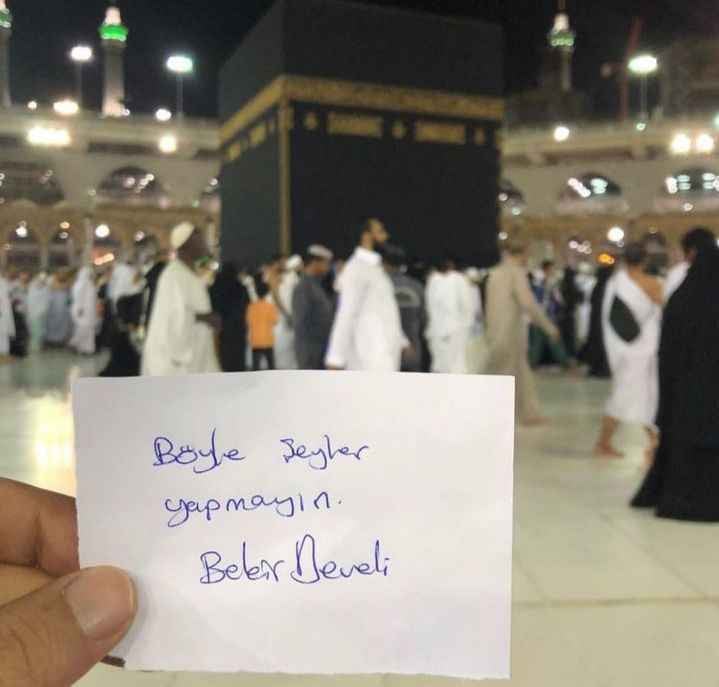 Böyle şeyler
yapmayın.
Bekir Develi